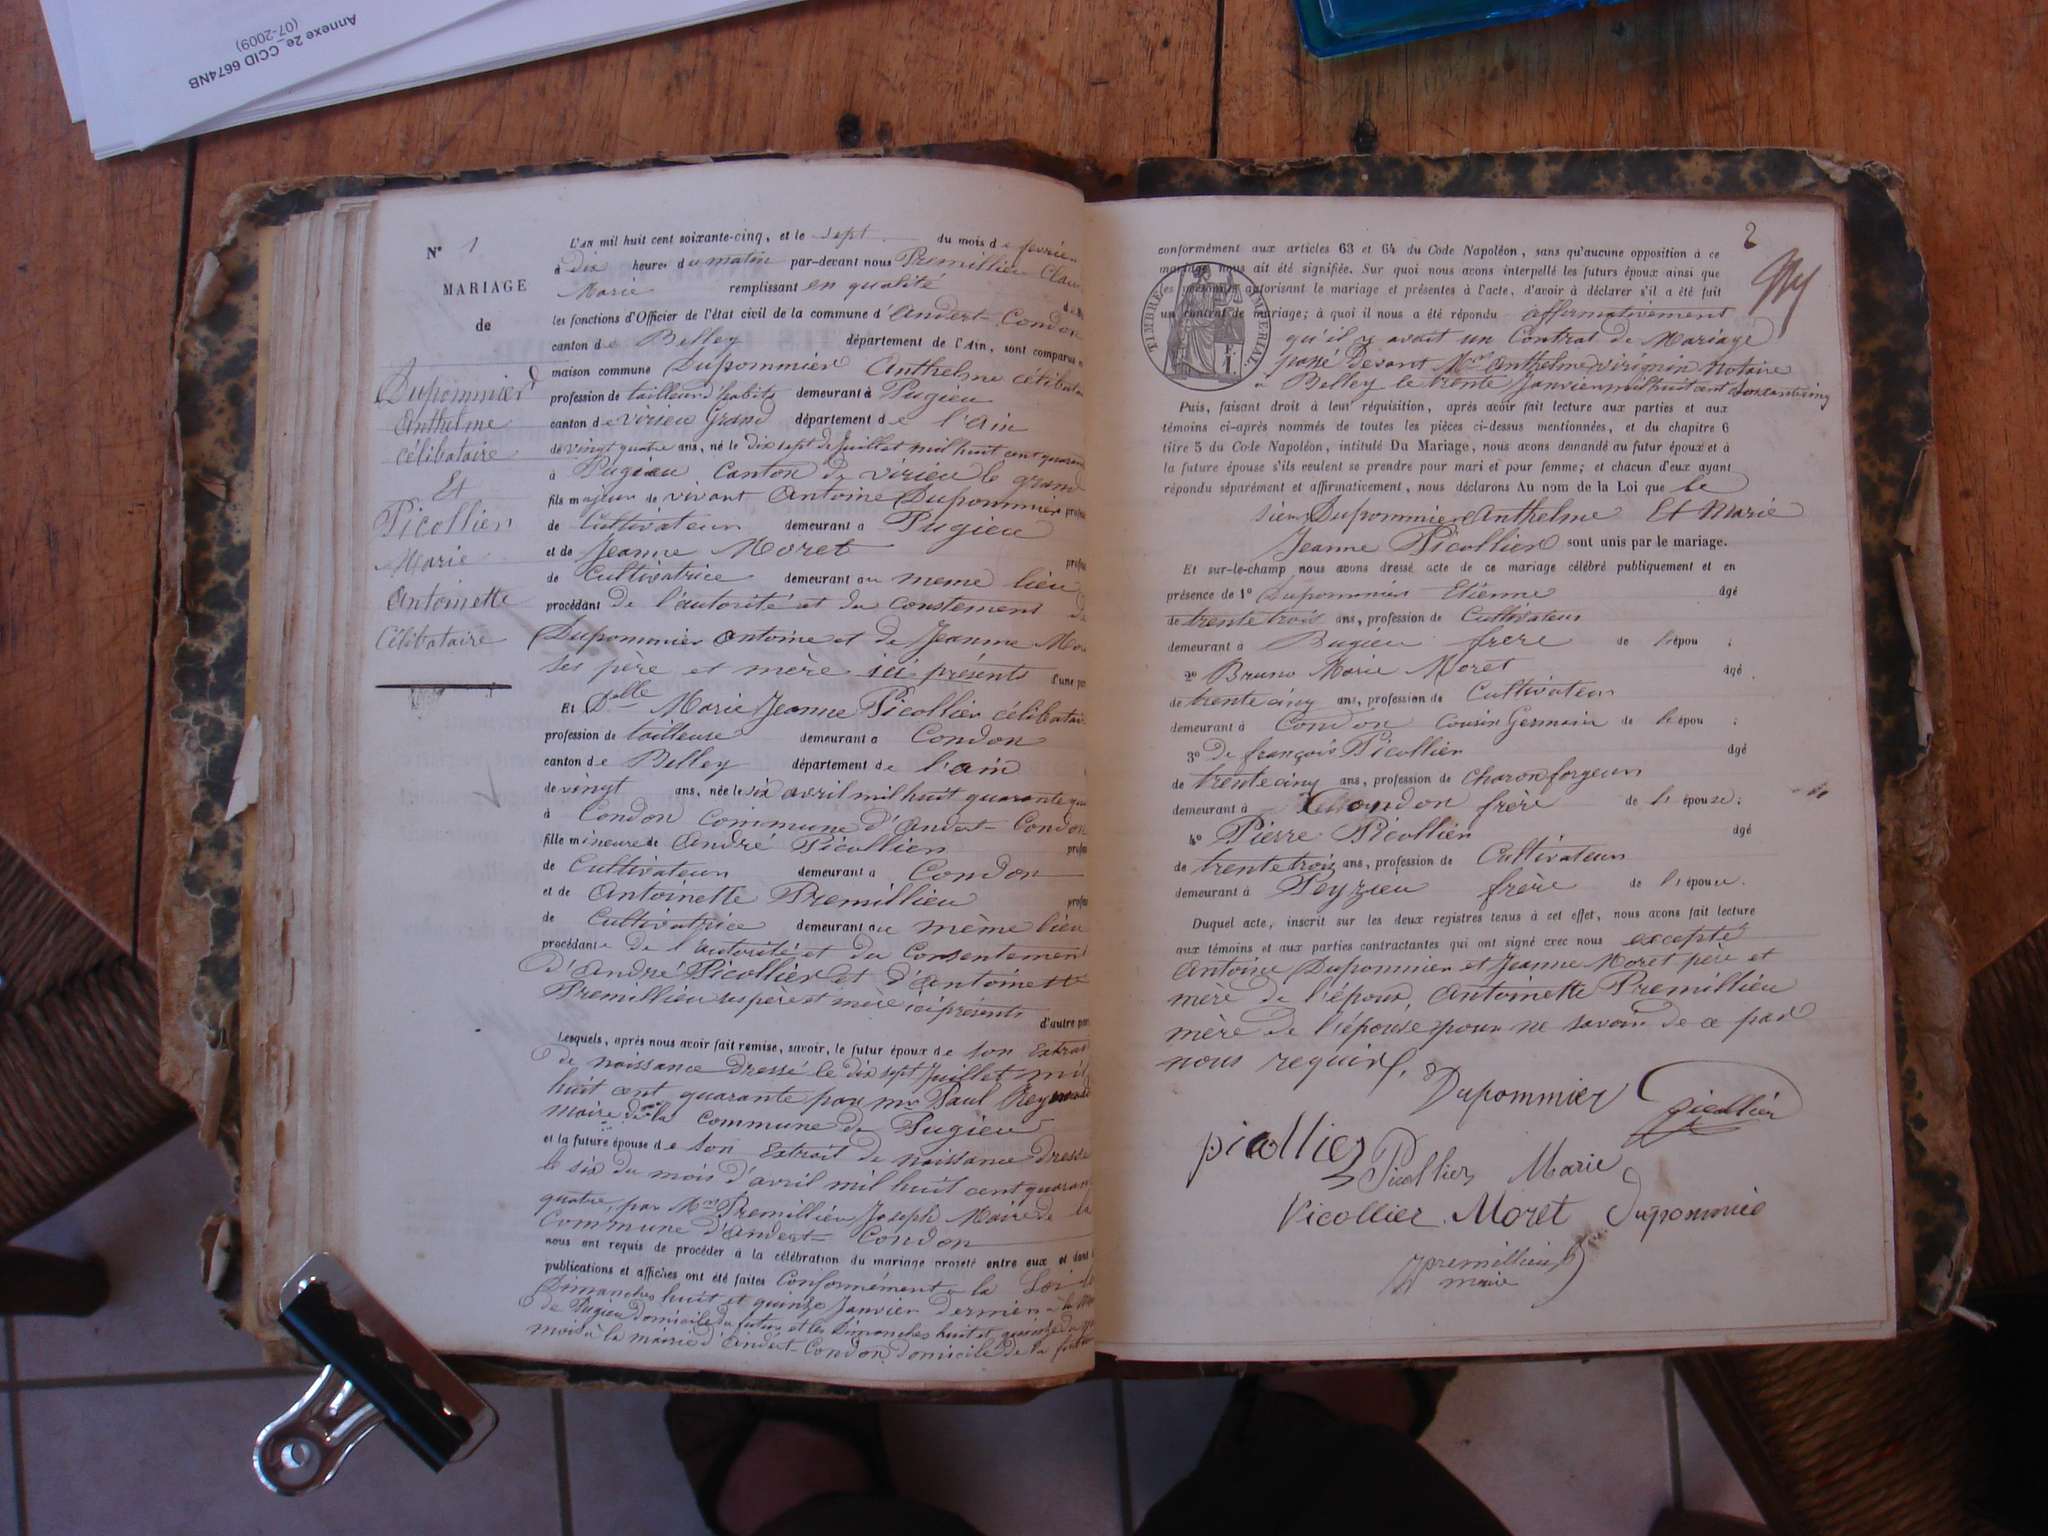 Annexe 2e_CCID 6674NB
(07-2009)
N° 1
MARIAGE
de
Dupommier
Anthelme
célibataire
Et
Picollier
Marie
Antoinette
Célibataire
L'an mil huit cent soixante-cinq, et le sept du mois de fevrie
à dix heures du matin par-devant nous Premillieu Clau
Marie remplissant en qualité
les fonctions d'Officier de l'état civil de la commune d'Andert-Condon
canton de Belley département de l'Ain, sont comparus
maison commune Dupommier Anthelme célibat
profession de tailleur d'habits demeurant à Pugieu
canton de virieu grand département de l'ain
de vingt quatre ans, né le dix sept de Juillet mil huit cent quaran
à Pugieu Canton de virieu le grand
fils majeur de vivant Antoine Dupommier profes
de Cultivateur demeurant à Pugieu
et de Jeanne Moret profes
de Cultivatrice demeurant au meme lieu
procédant de l'autorité et du Constement
Dupommier Antoine et de Jeanne Mor
ses père et mère ici présents d'une par
Et Dlle Marie Jeanne Picollier célibatai
profession de tailleuse demeurant à Condon
canton de Belley département de l'ain
de vingt ans, née le six avril mil huit quarante qua
à Condon Commune d'Andert-Condon
fille mineure de André Picollier profes
de Cultivateur demeurant à Condon
et de Antoinette Premillieu profes
de Cultivatrice demeurant au même lieu
procédante de l'autorité et du Consentemen
d'André Picollier et d'Antoinette
Premillieu ses père et mère ici présents
d'autre part
Lesquels, après nous avoir fait remise, savoir, le futur époux de son Extrai
de naissance dressé le dix sept Juillet mil
huit cent quarante par mr Paul
maire de la Commune de Pugieu
et la future épouse de son Extrait de naissance dressé
le six du mois d'avril mil huit cent quaran
quatre, par Mr Premillieu Joseph Maire de la
Commune d'Andert-Condon
nous ont requis de procéder à la célébration du mariage projeté entre eux et dont
publications et affiches ont été faites Conformément a la Loi
Dimanches huit et quinze Janvier dernier à la
de Pugieu domicile du futur et les Dimanches huit et quinze du
mois à la mairie d'Andert-Condon domicile de la futu
2
conformément aux articles 63 et 64 du Code Napoléon, sans qu'aucune opposition à ce
mariage nous ait été signifiée. Sur quoi nous avons interpellé les futurs époux ainsi que
les personnes autorisant le mariage et présentes à l'acte, d'avoir à déclarer s'il a été fait
un contrat de mariage; à quoi il nous a été répondu affirmativement
TIMBRE IMPERIAL
qu'il y avait un Contrat de Mariage
passé Devant Mre Anthelme virignin Notaire
à Belley le trente Janvier mil huit cent soixante cinq
Puis, faisant droit à leur réquisition, après avoir fait lecture aux parties et aux
témoins ci-après nommés de toutes les pièces ci-dessus mentionnées, et du chapitre 6
titre 5 du Code Napoléon, intitulé Du Mariage, nous avons demandé au futur époux et à
la future épouse s'ils veulent se prendre pour mari et pour femme; et chacun d'eux ayant
répondu séparément et affirmativement, nous déclarons Au nom de la Loi que le
sieur Dupommier Anthelme Et Marie
Jeanne Picollier sont unis par le mariage.
Et sur-le-champ nous avons dressé acte de ce mariage célébré publiquement et en
présence de 1° Dupommier Etienne âgé
de trente trois ans, profession de Cultivateur
demeurant à Pugieu frère de l'épou ;
2° Bruno Marie Moret âgé
de trente cinq ans, profession de Cultivateur
demeurant à Condon Cousin Germain de l'épou ;
3° de françois Picollier âgé
de trente cinq ans, profession de Charon forgeur
demeurant à Condon frère de l'épouse;
4° Pierre Picollier âgé
de trente trois ans, profession de Cultivateur
demeurant à Peyzieu frère de l'épouse.
Duquel acte, inscrit sur les deux registres tenus à cet effet, nous avons fait lecture
aux témoins et aux parties contractantes qui ont signé avec nous excepté
Antoine Dupommier et Jeanne Moret père et
mère de l'époux, Antoinette Premillieu
mère de l'épouse pour ne savoir de ce par
nous requis.
Dupommier picollier
picollier Picollier Marie
Picollier Moret Dupommié
premillieu
maire